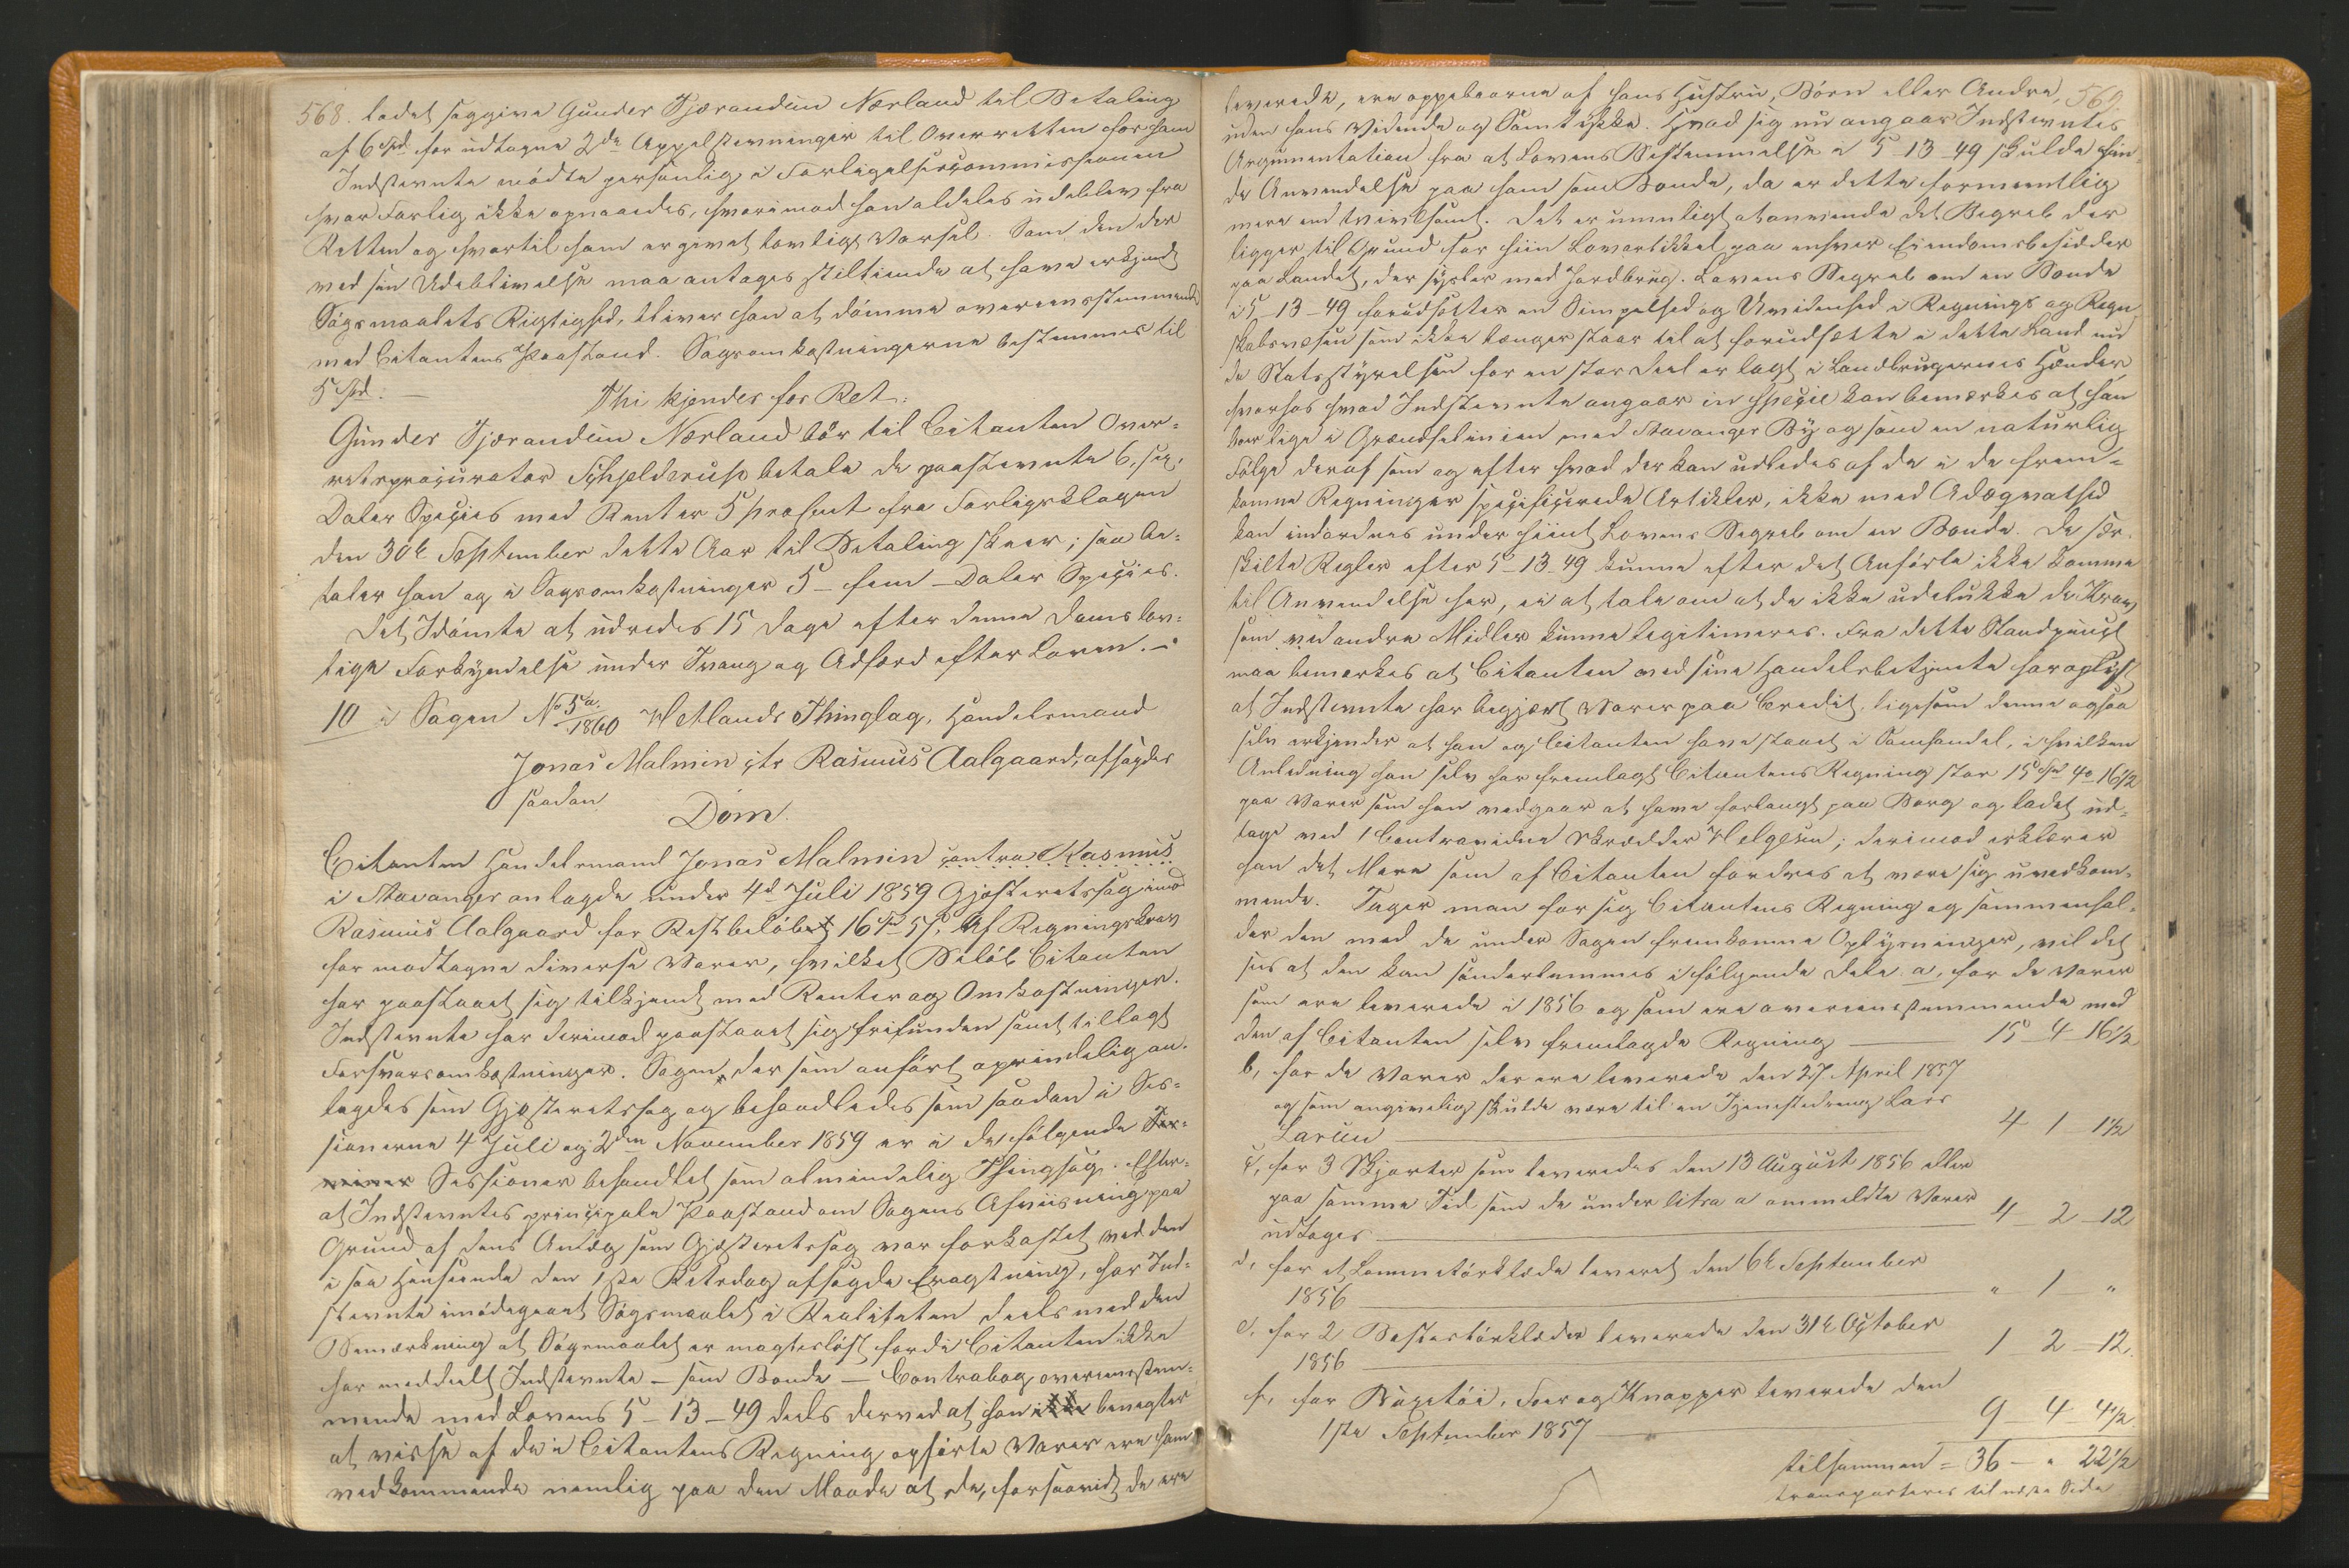 568. ladet saggive Gunder Tjærandsen Nærland til Betaling
af 6 Spd for udtagne 2de Appelstevninger til Overretten for ham
Indstevnte mødte personlig i Forligelsescommissionen
hvor Forlig ikke opnaaedes, hvorimod han aldeles udeblev fra
Retten og hvortil ham er givet lovligt Varsel. Som den der
ved sin Udeblivelse maa antages stiltiende at have erkjendt
Søgsmaalets Rigtighed, bliver han at dømme overeensstemmende
med Citantens Paastand. Sagsomkostningerne bestemmes til
5 Spd. —
Thi kjendes for Ret:
Gunder Tjærandsen Nærland bør til Citanten Over-
retsprocurator Schjelderup betale de paastevnte 6, sex,
Daler Species med Renter 5 procent fra Forligsklagen
den 30te September dette Aar til Betaling skeer; saa be-
taler han og i Sagsomkostninger 5 – fem – Daler Species.
Det Idømte at udredes 15 Dage efter denne Doms lov-
lige Forkyndelse under Tvang og Adfærd efter Loven. –
10 i Sagen No 5a/1860 Hetlands Thinglag, Handelsmand
Jonas Malmin ctr Rasmus Aalgaard, afsagdes
saadan
Dom.
Citanten Handelsmand Jonas Malmin contra Rasmus
i Stavanger anlagde under 4de Juli 1859 Gjæsteretssag imod
Rasmus Aalgaard for Restbeløbet 16 Spd 57 s. af Regningskrav
for modtagne diverse Varer, hvilket Beløb Citanten
har paastaaet sig tilkjendt med Renter og Omkostninger.
Indstevnte har derimod paastaaet sig frifunden samt tillagt
Forsvarsomkostninger. Sagen, der som anført oprindelig an-
lagdes som Gjæsteretssag og behandledes som saadan i Ses-
sionerne 4 Juli og 2den November 1859 er i de følgende Ter-
miner Sessioner behandlet som almindelig Thingsag. Efter-
at Indstevntes principale Paastand om Sagens Afviisning paa
Grund af dens Anlæg som Gjæsteretssag var forkastet ved den
i saa Henseende den 1ste Retsdag afsagde Eragtning, har Ind-
stevnte imødegaaet Søgsmaalet i Realiteten deels med den
Bemærkning at Søgsmaalet er magtesløst fordi Citanten ikke
har meddeelt Indstevnte – som Bonde – Contrabog overeensstem-
mende med Lovens 5–13–49 deels derved at han ikke benegter
at visse af de i Citantens Regning opførte Varer ere ham
vedkommende nemlig paa den Maade at de, forsaavidt de ere
569.
leverede, ere oppebaarne af hans Hustru, Børn eller Andre,
uden hans Vidende og Samtykke. Hvad sig nu angaar Indstevntes
Argumentation fra at Lovens Bestemmelse i 5–13–49 skulde fin-
de Anvendelse paa ham som Bonde, da er dette formeentlig
mere end tvivlsomt. Det er umuligt at anvende det Begreb der
ligger til Grund for hiin Lovartikkel paa enhver Eiendomsbesidder
paa Landet, der sysler med Jordbrug. Lovens Begreb om en Bonde
i 5–13–49 forudsætter en Simpelhed og Uvidenhed i Regnings og Regn-
skabsvæsen som ikke længer staar til at forudsætte i dette Land nu
da Statsstyrelsen for en stor Deel er lagt i Landbrugernes Hænder,
hvorhos hvad Indstevnte angaar in specie kan bemærkes at han
boer lige i Grændselinien med Stavanger By og som en naturlig
Følge deraf som og efter hvad der kan udledes af de i de frem-
komne Regninger specificerede Artikler, ikke med Adæqvathed
kan indordnes under hiint Lovens Begreb om en Bonde. De sær-
skilte Regler efter 5–13–49 kunne efter det Anførte ikke komme
til Anvendelse her, ei at tale om at de ikke udelukke de Krav
som ved andre Midler kunne legitimeres. Fra dette Standpunct
maa bemærkes at Citanten ved sine Handelsbetjente har oplyst
at Indstevnte har begjært Varer paa Credit, ligesom denne ogsaa
selv erkjender at han og Citanten have staaet i Samhandel, i hvilken
Anledning han selv har fremlagt Citantens Regning stor 15 Spd 4 o 16½
paa Varer som han vedgaar at have forlangt paa Borg og ladet ud-
tage ved 1 Contravidne Skrædder Helgesen; derimod erklærer
han det Mere som af Citanten fordres at være sig uvedkom-
mende. Tager man for sig Citantens Regning og sammenhol-
der den med de under Sagen fremkomne Oplysninger, vil det
sees at den kan sønderlemmes i følgende Dele: a, for de Varer
som ere leverede i 1856 og som ere overeensstemmende med
den af Citanten selv fremlagde Regning — 15 – 4 – 16½
b, for de Varer der ere leverede den 27 April 1857
og som angivelig skulde være til en Tjenestedreng Lars
Larsen — 4 – 1 – 1½
c, for 3 Skjorter som leveredes den 13 August 1856 eller
paa samme Tid som de under litra a ommeldte Varer
udtoges — 4 – 2 – 12
d, for et Lommetørklæde leveret den 6te September
1856 — " 1 – "
e, for 2 Bestørklæder leverede den 31te October
1856 — 1 2 – 12.
f, for Buxetøi, Foer og Knapper leverede den
1ste September 1857 — 9 – 4 – 4½
tilsammen = 36 – " 22½
transporteres til næste Side